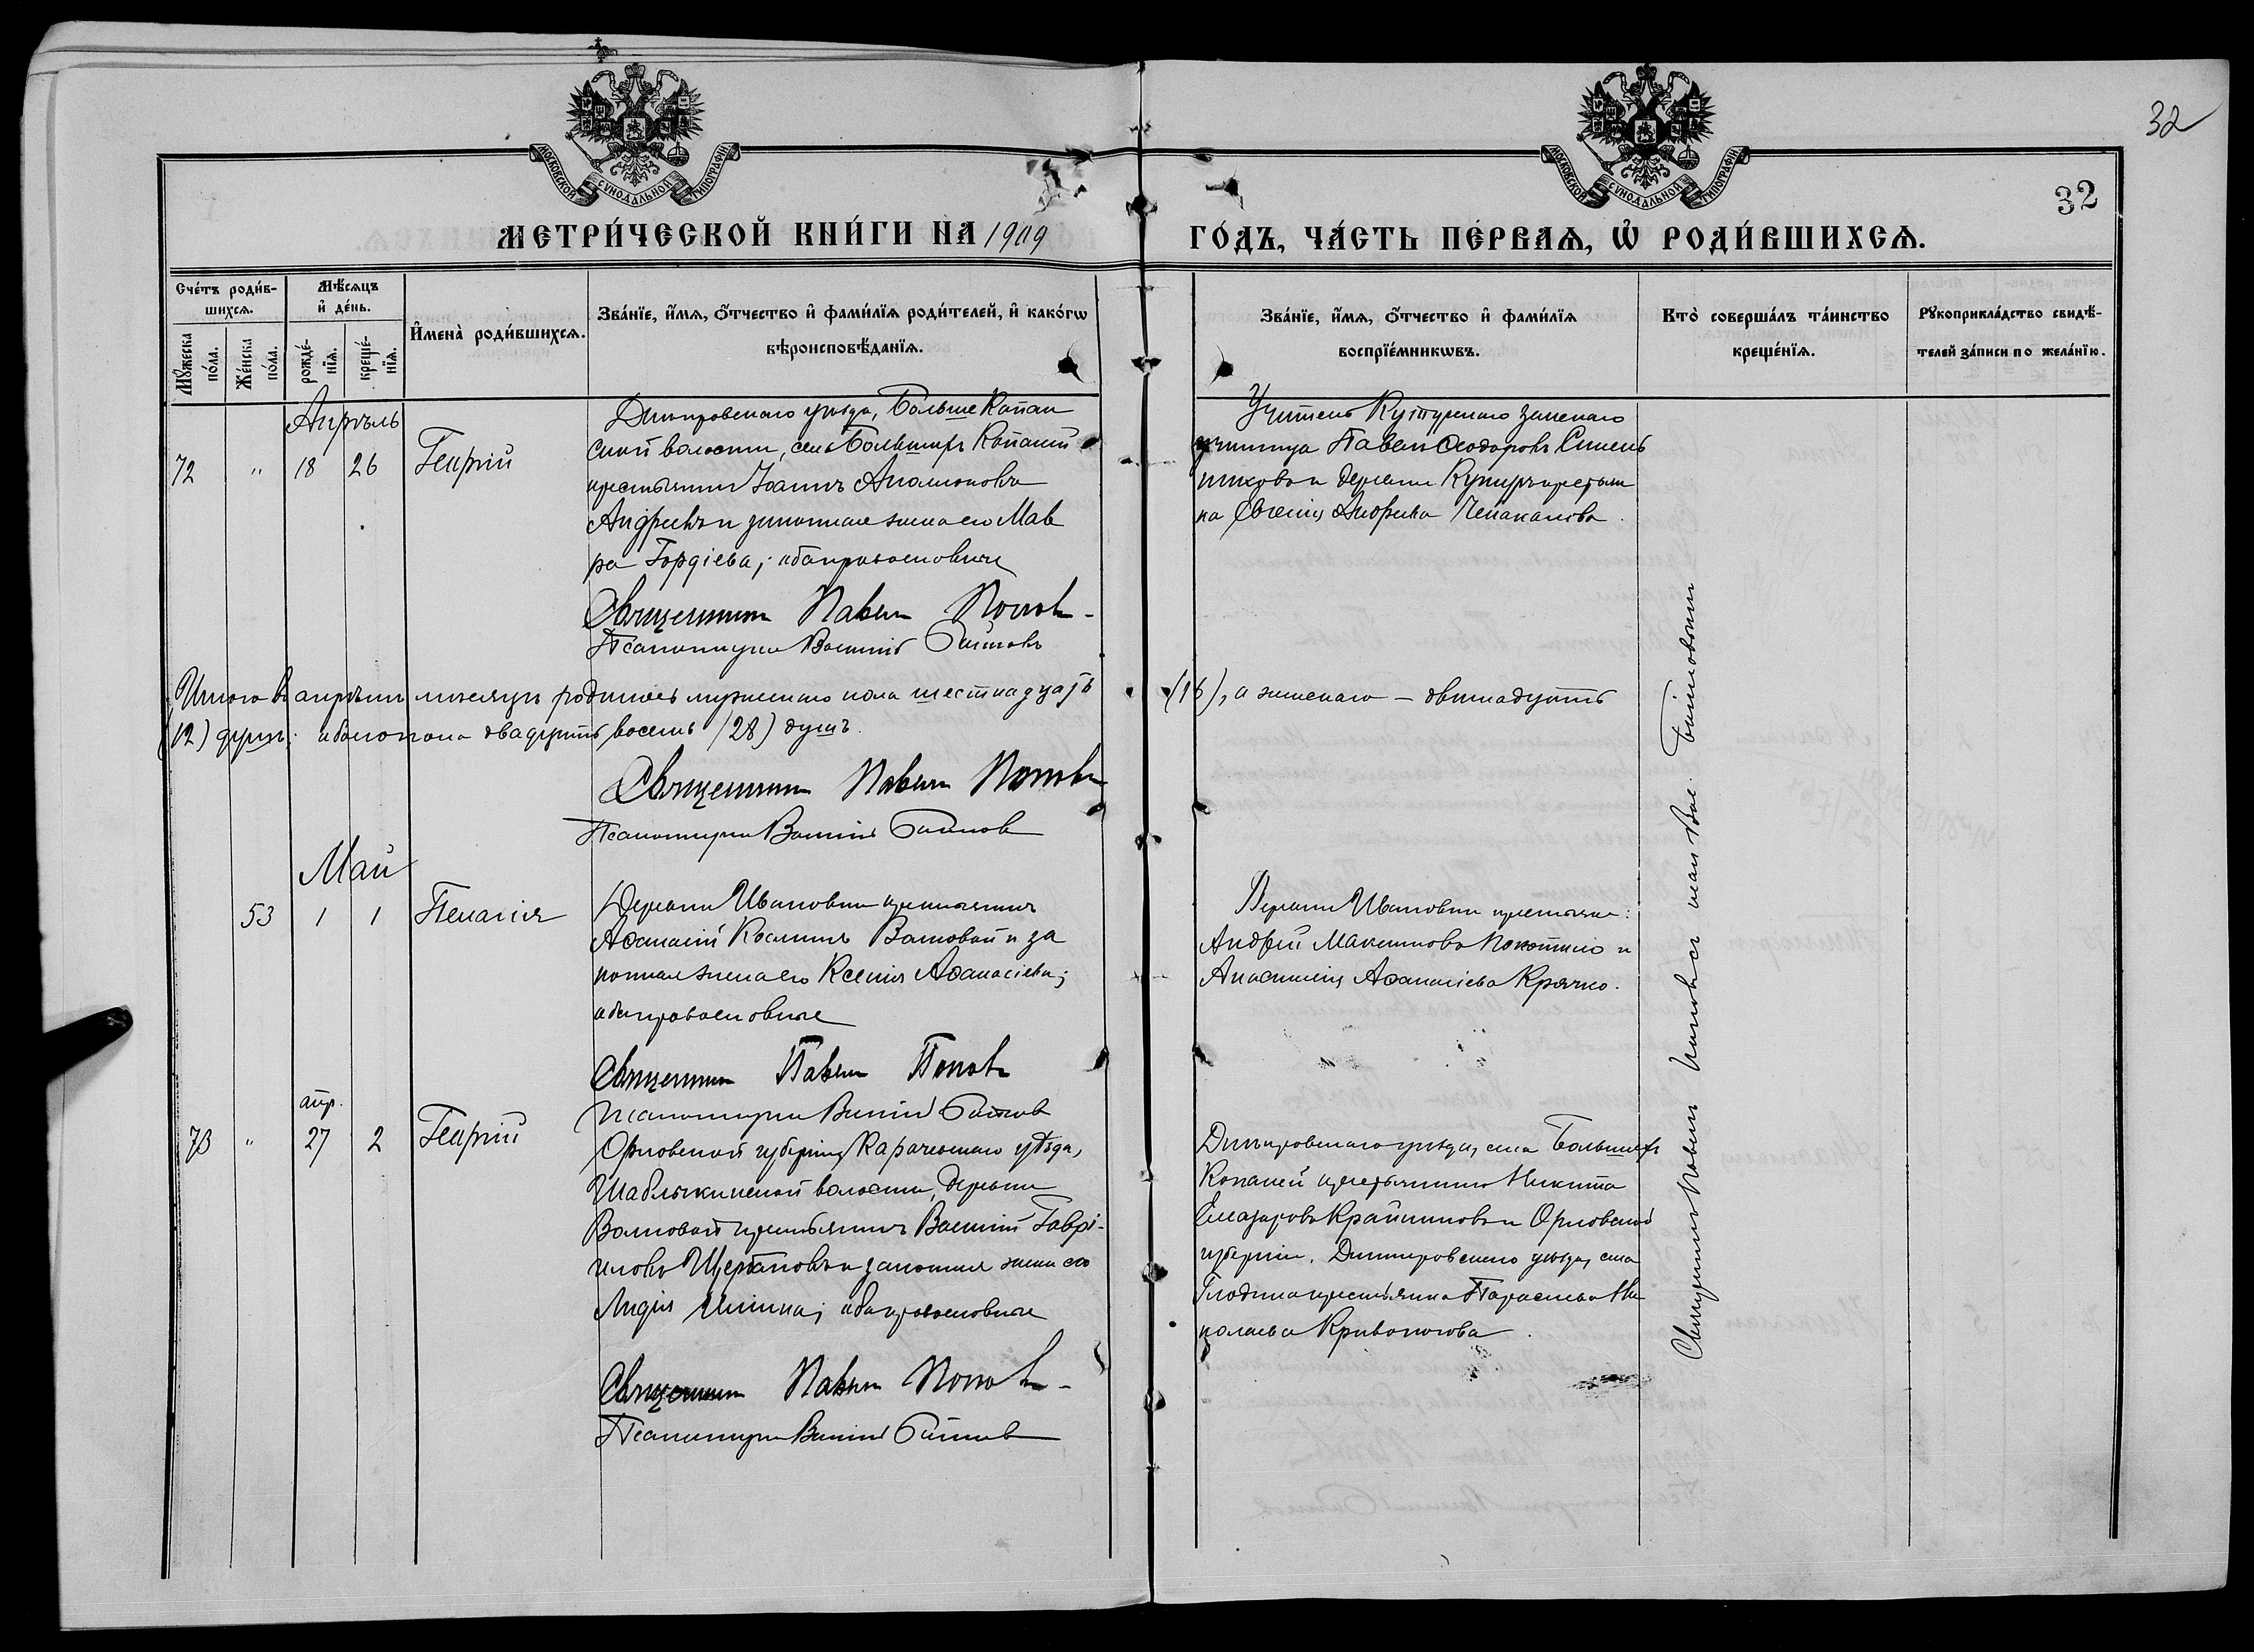 32
32
МОСКОВСКОЙ СѴНОДАЛЬНОЙ ТИПОГРАФІИ
МОСКОВСКОЙ СѴНОДАЛЬНОЙ ТИПОГРАФІИ
МЕТРИ́ЧЕСКОЙ КНИ́ГИ НА 1909
ГО́ДЪ, ЧА́СТЬ ПЕ́РВАЯ, Ѡ РОДИ́ВШИХСЯ.
Сче́тъ роди́в-
шихся.
Му́жеска
по́ла.
Же́нска
по́ла.
Мѣ́сяцъ
и҆ де́нь.
рожде́-
нїя.
креще́-
нїя.
И҆мена̀ роди́вшихся.
Зва́нїе, и҆́мя, ѻ҆́тчество и҆ фами́лїя роди́телей, и҆ како́гѡ
вѣроисповѣ́данїя.
Зва́нїе, и҆́мя, ѻ҆́тчество и҆ фами́лїя
воспрїе́мникѡвъ.
Кто̀ соверша́лъ та́инство
креще́нїя.
Рꙋкоприкла́дство свидѣ́-
телей за́писи по жела́нїю.
Апрѣль
72 " 18 26 Георгій
Днѣпровскаго уѣзда, Больше Копан
ской волости, села Большихъ Копаній
крестьянинъ Іоаннъ
и законная жена его Мав
ра Гордіева; оба православные
Священникъ Павелъ Поповъ
Псаломщикъ Василій
Учитель земскаго
училища Павелъ Ѳеодоровъ
и деревни крестьян
ка Евгенія
Итого въ апрѣлѣ мѣсяцѣ родилось мужескаго пола шестнадцать
(16), а женскаго - двѣнадцать
(12) душъ; обоего пола двадцать восемь (28) душъ.
Священникъ Павелъ Поповъ
Псаломщикъ Василій
Май
53 1 1 Пелагія
Деревни Ивановки крестьянинъ
Аѳанасій Волковой и за
конная жена его Ксенія Аѳанасіева;
оба православные
Священникъ Павелъ Поповъ
Псаломщикъ Василій
Деревни Ивановки крестьяне:
Андрей Максимовъ и
Анастасія Аѳанасіева Крячко.
апр.
73 " 27 2 Георгій
Орловской губерніи, Карачевскаго уѣзда,
Шаблыкинской волости, деревни
Волковой крестьянинъ Василій Гаврі-
иловъ и законная жена его
Лидія Ильина; оба православные
Священникъ Павелъ Поповъ
Псаломщикъ Василій
Днѣпровскаго уѣзда, села Большихъ
Копаней крестьянинъ Никита
и Орловской
губерніи, Дмитровскаго уѣзда, села
Глодина крестьянка Параскева Ни
колаева Кривоногова.
Священникъ Павелъ Поповъ съ псал. Вас.